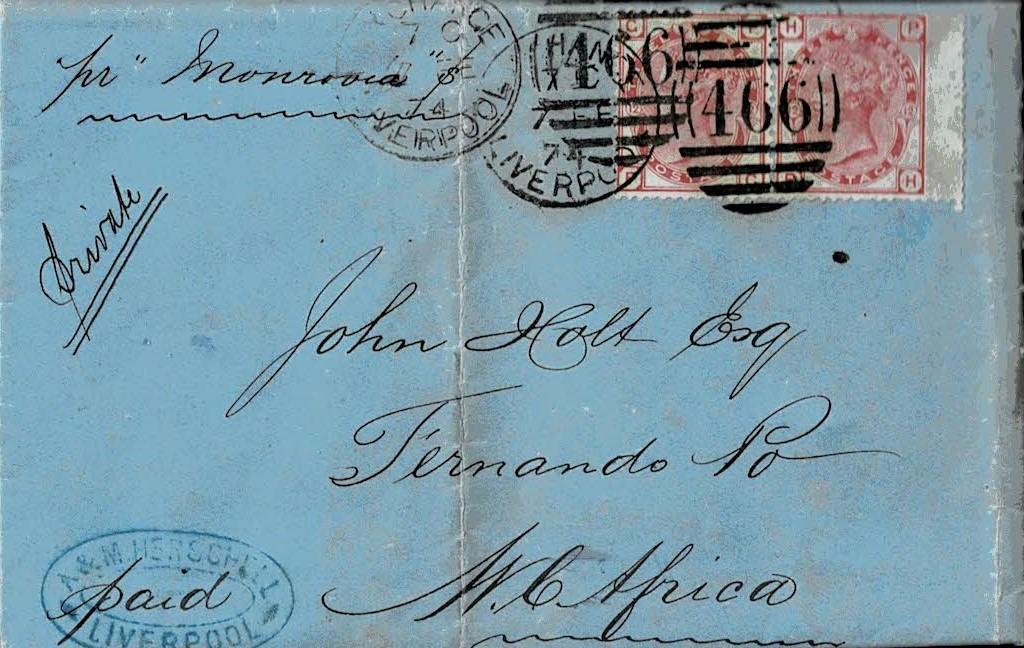 pr "Monrovia" s
7 FE
74
LIVERPOOL
466
466
Private
John Holt Esq
Fernando Po
W. C Africa
paid
A & M. HERSCHELL
LIVERPOOL